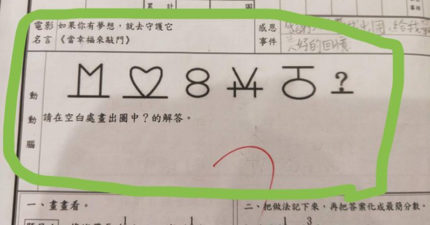 電影 如果你有夢想,就去守護它
名言 《當幸福來敲門》
感恩
事件
?
動動腦
請在空白處畫出圖中?的解答。
一、畫畫看。
二、把做法記下來,再把答案化成最簡分數。